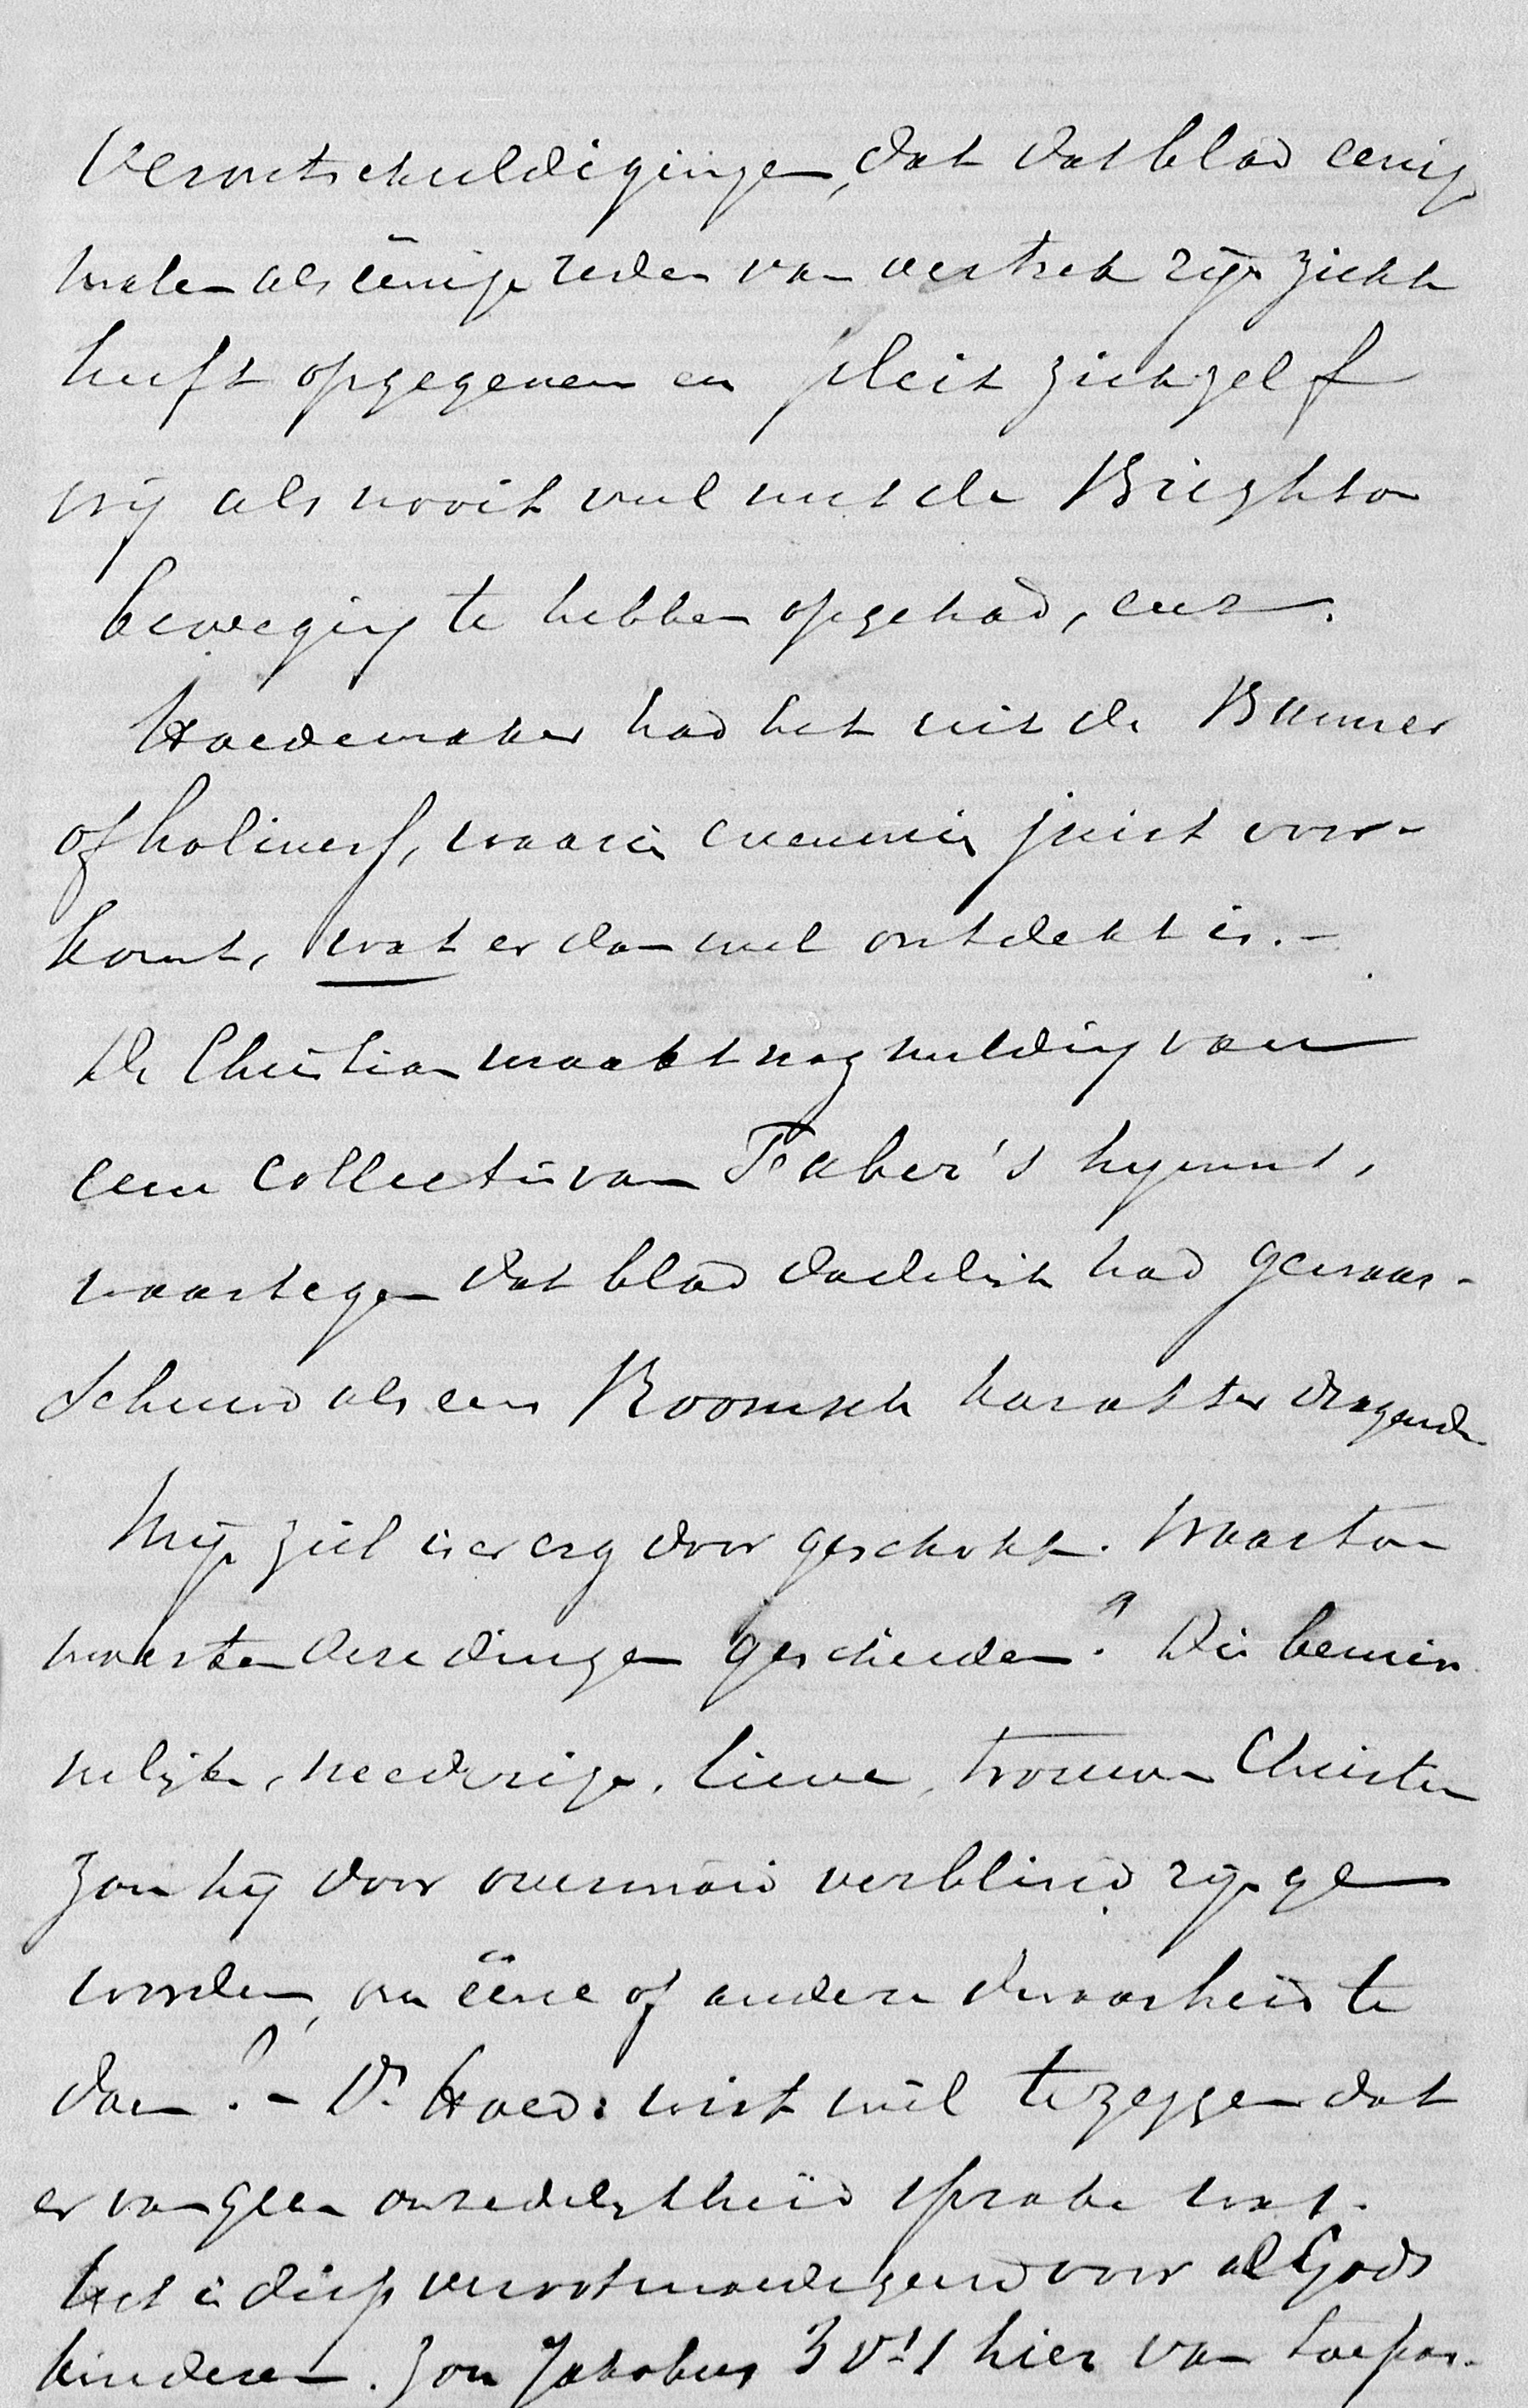 Verontschuldigingen, dat dat blad eenige
malen als éénige reden van vertrek zijn ziekte
heeft opgegeven en pleit zichzelf
vrij als nooit veel met de Brighton
beweging te hebben opgehad, enz.
Hoedemaker had het uit de Banner
of holiness, waarin evenmin juist voor-
komt, wat er dan wel ontdekt is. –
De Christian maakt nog melding van
eene collectie van Faber's hymns,
waartegen dat blad dadelijk had gewaar-
schuwd als een Roomsch karakter dragende
Mijn ziel is er erg door geschokt. Waartoe
moesten deze dingen geschieden? Die bemin
nelijke, needrige, lieve, trouwe Christen
zou hij door overmoed verblind zijn ge
worden, om ééne of andere dwaasheid te
doen? – Dr. Hoed: wist wèl te zeggen dat
er van geen onzedelijkheid sprake was.
Het is diep verootmoedigend voor al Gods
kinderen. Zou Jakobus 3 vs 1 hier van toepas-